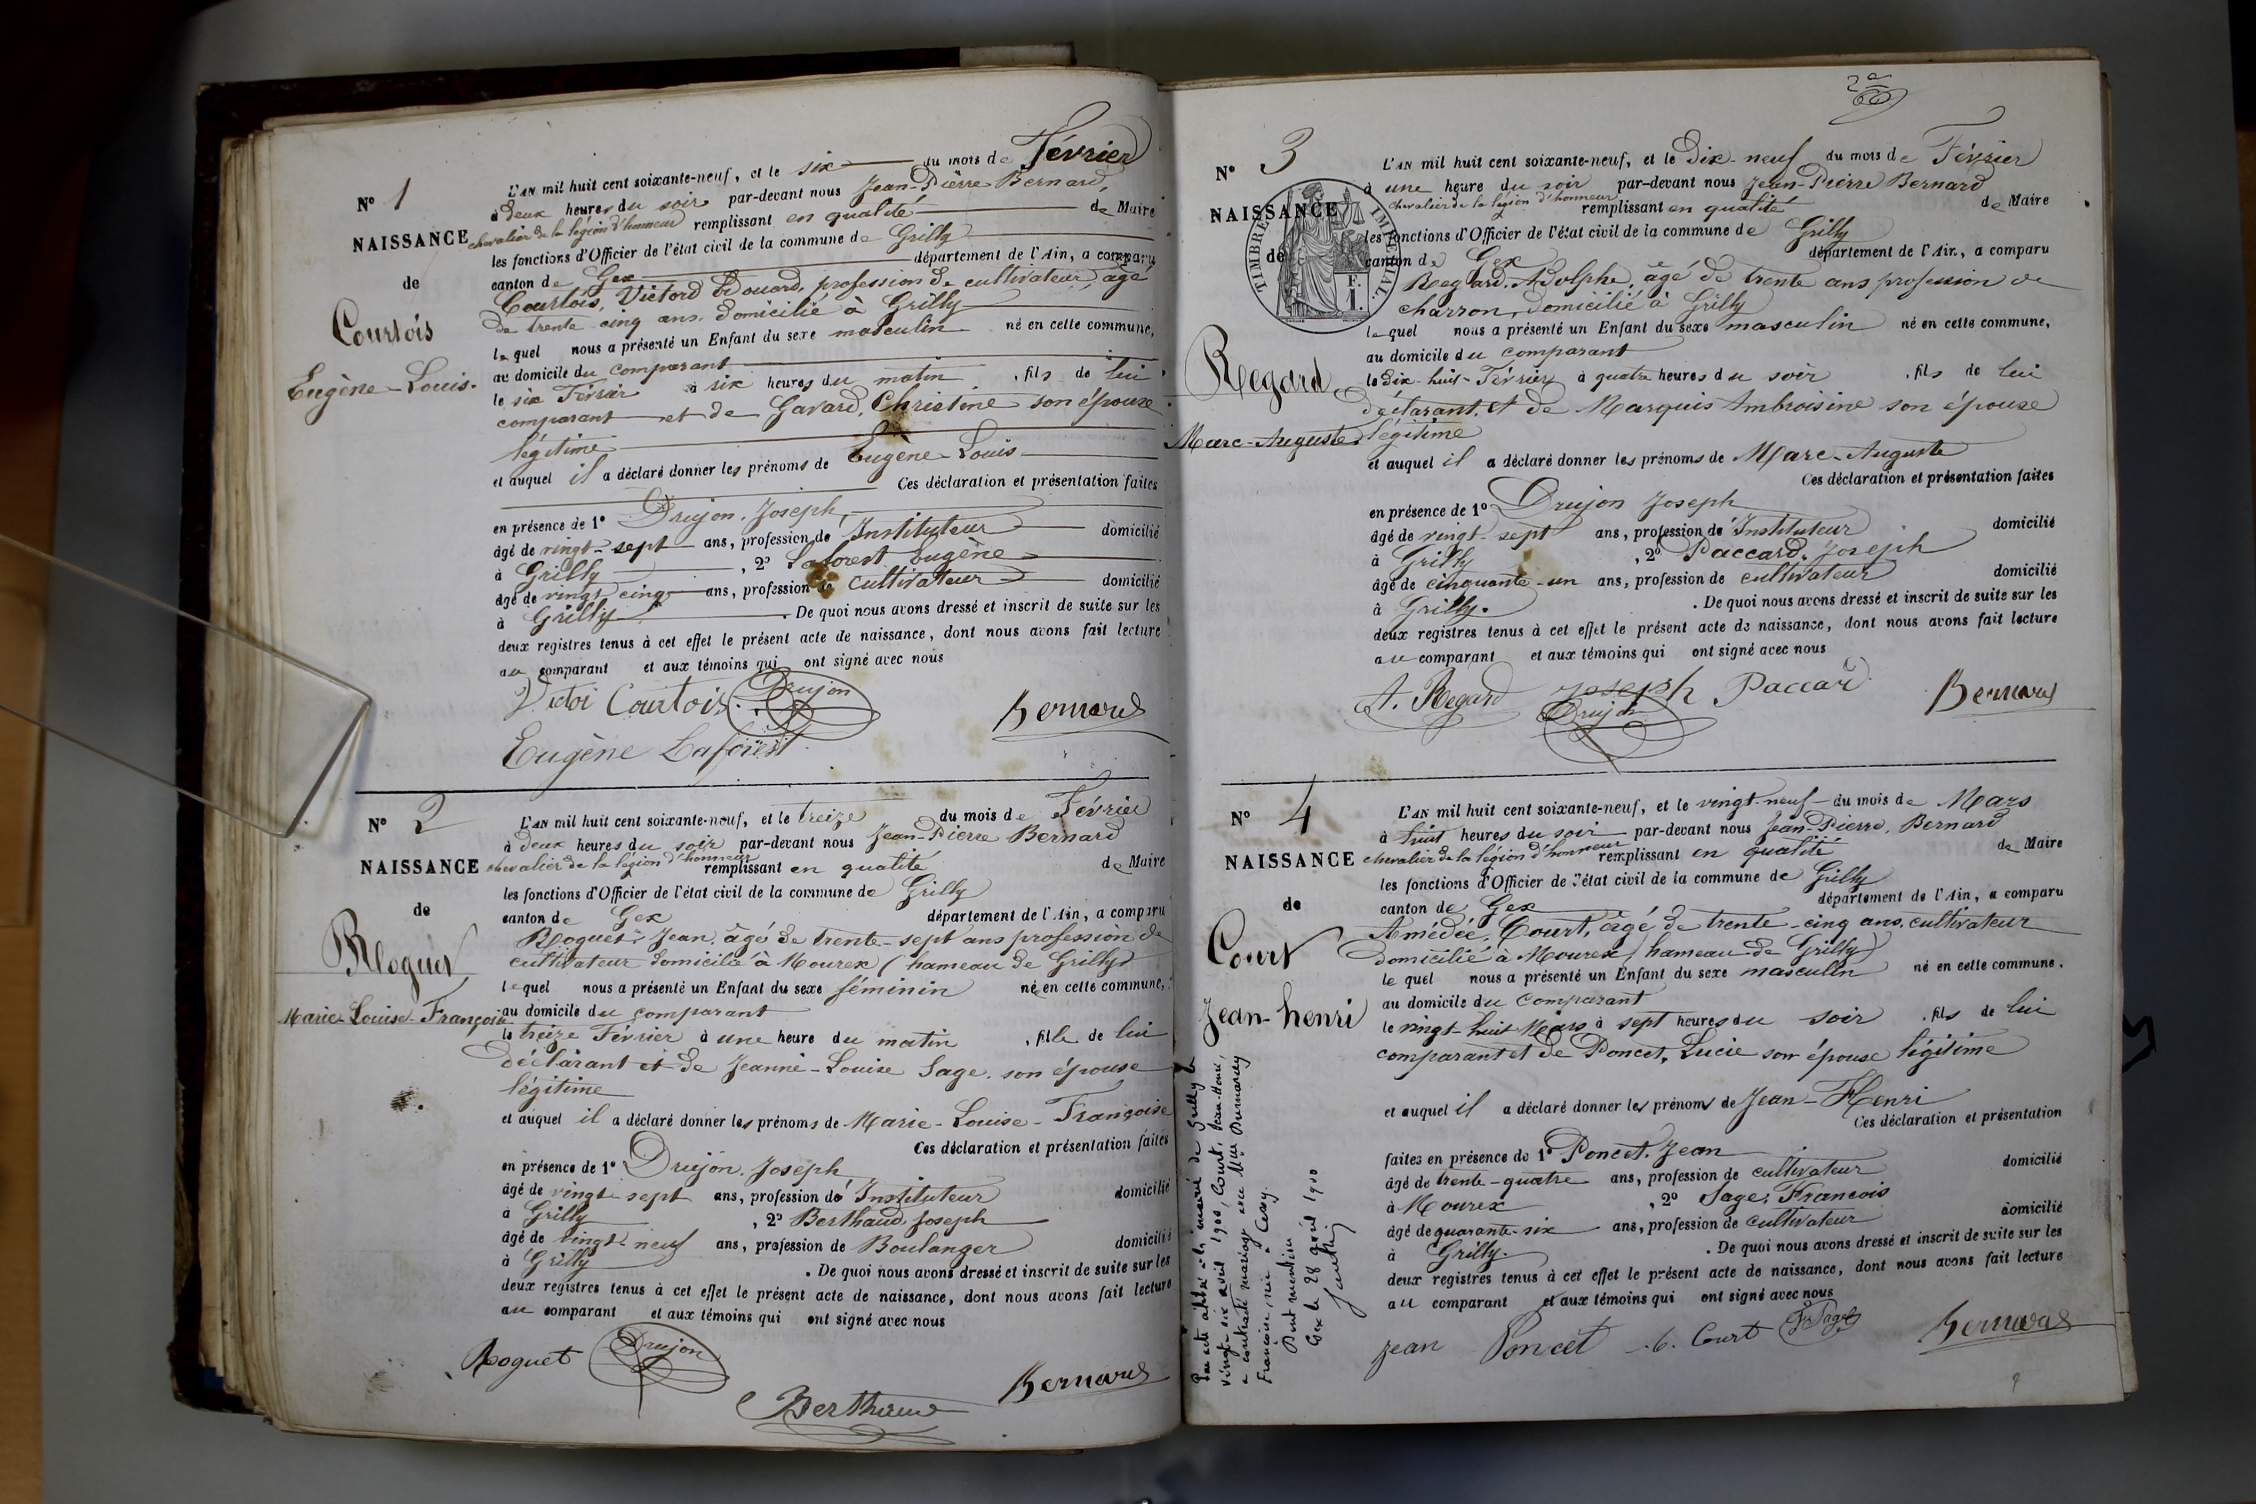 N° 1
NAISSANCE
de
Courtois
Eugène-Louis.
L'AN mil huit cent soixante-neuf, et le six du mois de Février
à deux heures du soir par-devant nous Jean-Pierre Bernard,
chevalier de la légion d'honneur remplissant en qualité de Maire
les fonctions d'Officier de l'état civil de la commune de Grilly
canton de Gex département de l'Ain, a comparu
Courtois, Victord Edouard, profession de cultivateur, âgé
de trente cinq ans, domicilié à Grilly
lequel nous a présenté un Enfant du sexe masculin né en cette commune,
au domicile du comparant
le six Février à six heures du matin, fils de lui
comparant et de Gavard, Christine son épouse
légitime
et auquel il a déclaré donner les prénoms de Eugène-Louis
Ces déclaration et présentation faites
en présence de 1° Drujon, Joseph,
âgé de vingt-sept ans, profession de Instituteur domicilié
à Grilly, 2° Laforest Eugène
âgé de vingt cinq ans, profession de cultivateur domicilié
à Grilly. De quoi nous avons dressé et inscrit de suite sur les
deux registres tenus à cet effet le présent acte de naissance, dont nous avons fait lecture
au comparant et aux témoins qui ont signé avec nous
Victor Courtois. Drujon
Bernard
Eugène Laforest
N° 2
NAISSANCE
de
Roguet
Marie-Louise-Françoise
L'AN mil huit cent soixante-neuf, et le treize du mois de Février
à deux heures du soir par-devant nous Jean-Pierre Bernard
chevalier de la légion d'honneur remplissant en qualité de Maire
les fonctions d'Officier de l'état civil de la commune de Grilly
canton de Gex département de l'Ain, a comparu
Roguet, Jean, âgé de trente-sept ans profession de
cultivateur domicilié à Mourex (hameau de Grilly)
lequel nous a présenté un Enfant du sexe féminin né en cette commune,
au domicile du comparant
le treize Février à une heure du matin, fille de lui
déclarant et de Jeanne-Louise Sage, son épouse
légitime
et auquel il a déclaré donner les prénoms de Marie-Louise-Françoise
Ces déclaration et présentation faites
en présence de 1° Drujon, Joseph
âgé de vingt-sept ans, profession de Instituteur domicilié
à Grilly, 2° Berthaud, Joseph
âgé de vingt-neuf ans, profession de Boulanger domicilié
à Grilly. De quoi nous avons dressé et inscrit de suite sur les
deux registres tenus à cet effet le présent acte de naissance, dont nous avons fait lecture
au comparant et aux témoins qui ont signé avec nous
Roguet Drujon
Bernard
Berthaud
N° 3
NAISSANCE
de
TIMBRE IMPERIAL
F.
1.
Regard
Marc-Auguste
L'AN mil huit cent soixante-neuf, et le Dix-neuf du mois de Février
à une heure du soir par-devant nous Jean-Pierre Bernard
chevalier de la légion d'honneur remplissant en qualité de Maire
les fonctions d'Officier de l'état civil de la commune de Grilly
canton de Gex département de l'Ain, a comparu
Regard, Adolphe, âgé de trente ans profession de
charron, domicilié à Grilly
lequel nous a présenté un Enfant du sexe masculin né en cette commune,
au domicile du comparant
le dix-huit-Février à quatre heures du soir, fils de lui
déclarant, et de Marquis Ambroisine son épouse
légitime
et auquel il a déclaré donner les prénoms de Marc-Auguste
Ces déclaration et présentation faites
en présence de 1° Drujon Joseph
âgé de vingt-sept ans, profession de Instituteur domicilié
à Grilly, 2° Paccard, Joseph
âgé de cinquante-un ans, profession de cultivateur domicilié
à Grilly. De quoi nous avons dressé et inscrit de suite sur les
deux registres tenus à cet effet le présent acte de naissance, dont nous avons fait lecture
au comparant et aux témoins qui ont signé avec nous
A. Regard Joseph Paccard Bernard
Drujon
N° 4
NAISSANCE
de
Court
Jean-henri
L'AN mil huit cent soixante-neuf, et le vingt-neuf du mois de Mars
à huit heures du soir par-devant nous Jean-Pierre, Bernard
chevalier de la légion d'honneur remplissant en qualité de Maire
les fonctions d'Officier de l'état civil de la commune de Grilly
canton de Gex département de l'Ain, a comparu
Amédée, Court, âgé de trente-cinq ans, cultivateur
domicilié à Mourex (hameau de Grilly)
lequel nous a présenté un Enfant du sexe masculin né en cette commune,
au domicile du comparant
le vingt-huit Mars à sept heures du soir, fils de lui
comparant et de Poncet, Lucie son épouse légitime
et auquel il a déclaré donner les prénoms de Jean-Henri
Ces déclaration et présentation
faites en présence de 1° Poncet, Jean domicilié
âgé de trente-quatre ans, profession de cultivateur
à Mourex, 2° Sage, François
âgé de quarante-six ans, profession de cultivateur domicilié
à Grilly. De quoi nous avons dressé et inscrit de suite sur les
deux registres tenus à cet effet le présent acte de naissance, dont nous avons fait lecture
au comparant et aux témoins qui ont signé avec nous
jean Poncet Court Sage Bernard
Par acte dressé à la mairie de Grilly le
vingt-six avril 1900, Court, Jean-Henri,
a contracté mariage avec Mlle
Françoise, née à Cessy.
Dont mention
Gex le 28 avril 1900